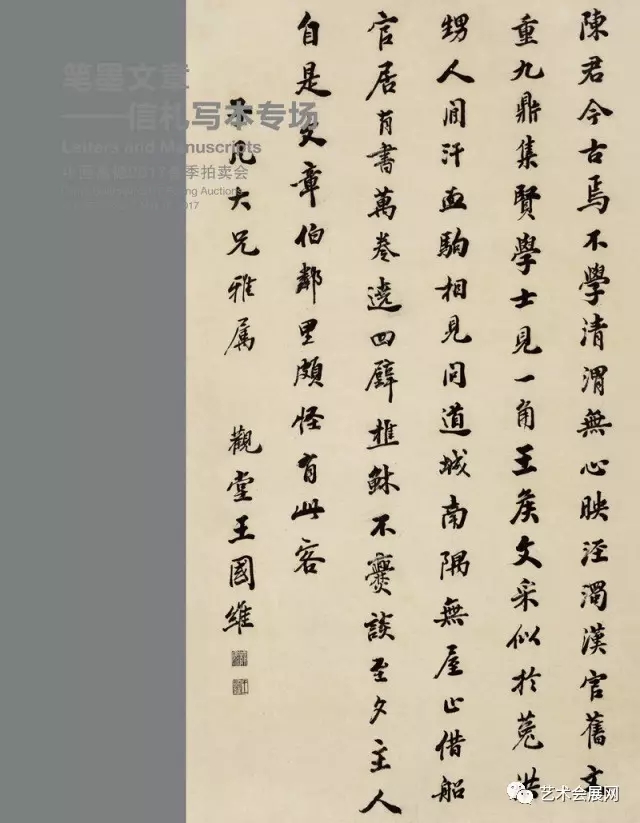 笔墨文章
——信札写本专场
Letters and Manuscripts
中国嘉德2017春季拍卖会
2017
陳君今古焉不學清渭無心映涇濁漢官舊文
重九鼎集賢學士見一角王矦文采似於菟洪
甥人間汗血駒相見问道城南隅無屋止借船
官居有書萬卷遶四壁樵穌不爨談至夕主人
自是文章伯鄰里頗怪有此客
凡大兄雅属 觀堂王國維
艺术会展网